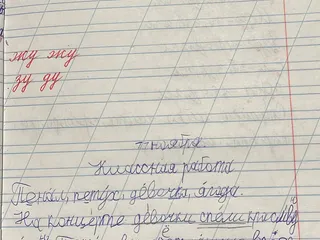 жу жу
зу ду
11 ноября.
Классная работа
Пенал, петух, девочка, ягоды.
На концерте девочки спели красиву